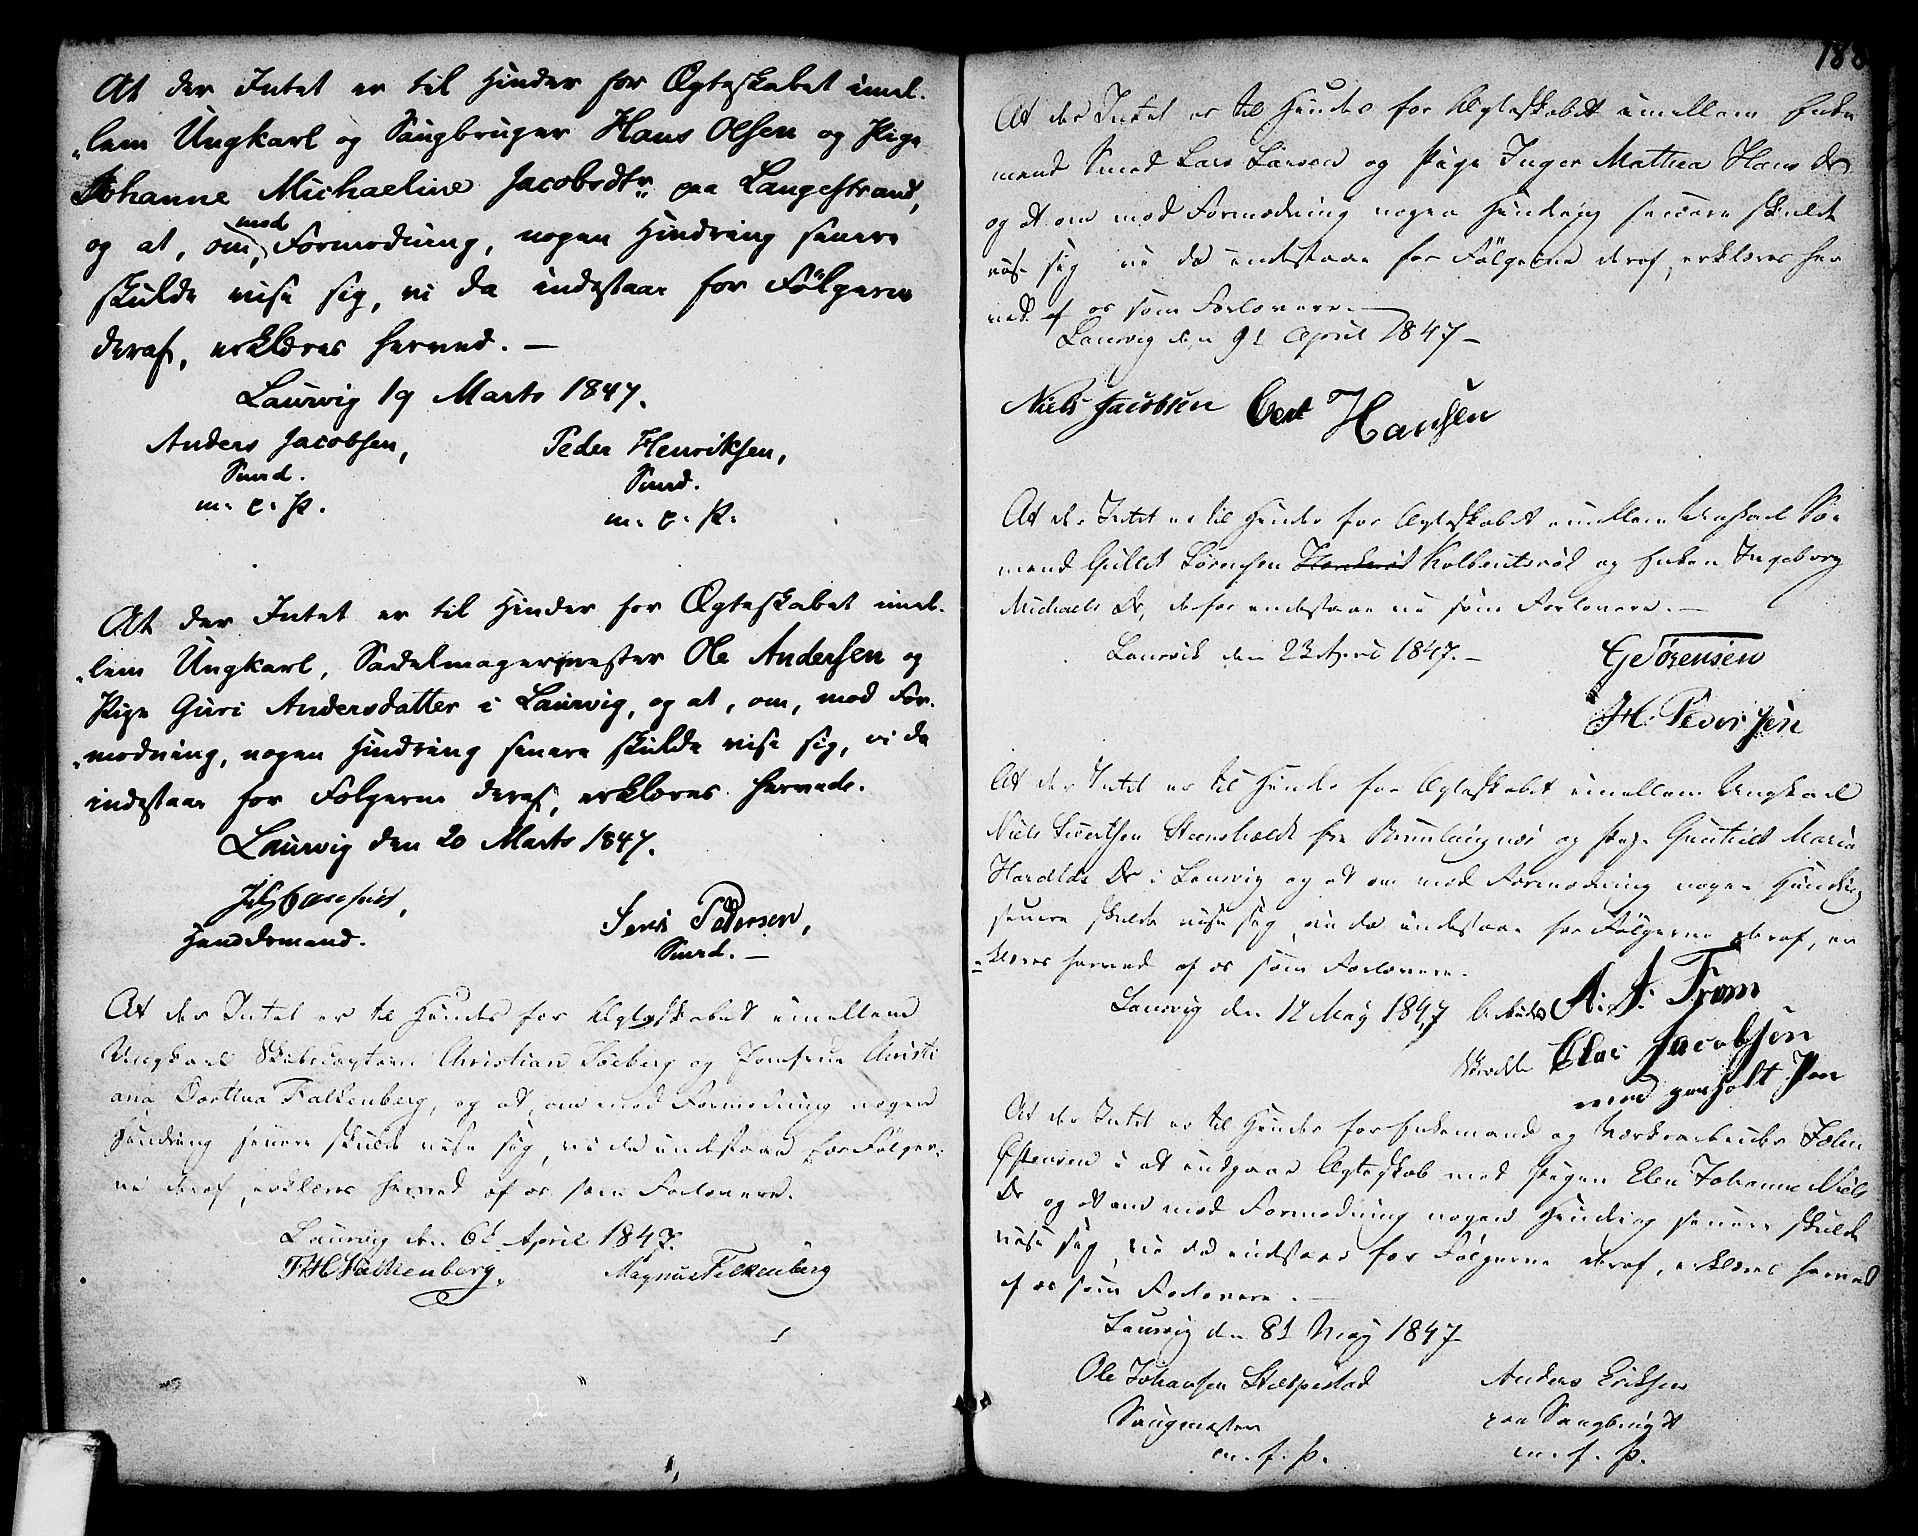 At der Intet er til Hinder for Ægteskabet imel-
„lem Ungkarl og Saugbruger Hans Olsen og Pige
Johanne Michaeline Jacobsdtr paa Langestrand,
og at, om, mod Formodning, nogen Hindring senere
skulde vise sig, vi da indestaae for Følgerne
deraf, erklæres herved. —
Laurvig 19 Marts 1847.
Anders Jacobsen, Peder Henriksen,
Smed. Smed.
m. p. P. m. p. P.
At der Intet er til Hinder for Ægteskabet imel-
„lem Ungkarl, Sadelmagermester Ole Andersen og
Pige Guri Andersdatter i Laurvig, og at, om, mod For-
„modning, nogen Hindring senere skulde vise sig, vi da
indestaae for Følgerne deraf, erklæres herved.
Laurvig den 20 Marts 1847.
Jens Pedersen,
Handelsmand. Smed. —
At der Intet er til Hinder for Ægteskabet imellem
Ungkarl Skibscaptain Christian Söeberg og Jomfrue Christi
ana Dorthea Falkenberg, og at, om mod Formodning nogen
Hindring senere skulde vise sig, vi da indestaae for Følger-
ne deraf, erklæres herved af os som Forlovere.
Laurvig den 6t April 1847.
Falkenberg. Magnus Falkenberg
188
At der Intet er til Hinder for Ægteskabet imellem Enke
mand Smed Lars Larsen og Pige Inger Mathea Hans Dr
og at om mod Formodning nogen Hindring senere skulde
vise sig vi da indestaae for Følgerne deraf, erklæres her
ved af os som Forlovere. —
Laurvig den 9t April 1847 —
Niels Jacobsen Hansen
At der Intet er til Hinder for Ægteskabet imellem Ungkarl Sö
mand Gullik Sörensen Kolbeinsröd og Enken Ingeborg
Michaels Dr, derfor indestaae vi som Forlovere. —
Laurvik den 23 April 1847. —
G Sörensen
H. Pedersen
At der Intet er til Hinder for Ægteskabet imellem Ungkarl
Niels Sivertsen Steensholdt fra Brunlangnæs og Pige Gunhild Maria
Haralds Dr i Laurvig og at om mod Formodning nogen Hindring
senere skulde vise sig, vi da indestaae for Følgerne deraf, er
klæres herved af os som Forlovere.
Laurvig den 12 May 1847 Arbeider A. J. Trom
Claus Jacobsen
med paaholdt Pen
At der Intet er til Hinder for Enkemand og Værksarbeider John
Østensen i at indgaae Ægteskab med Pigen Elen Johanne Niels
Dr og at om mod Formodning nogen Hindring senere skulde
vise sig, vi da indestaae for Følgerne deraf, erklæres herved
af os som Forlovere. —
Laurvig den 31 May 1847
Ole Johansen Anders Eriksen
Saugmester paa Saugbruget
m. f. P. m. f. P.